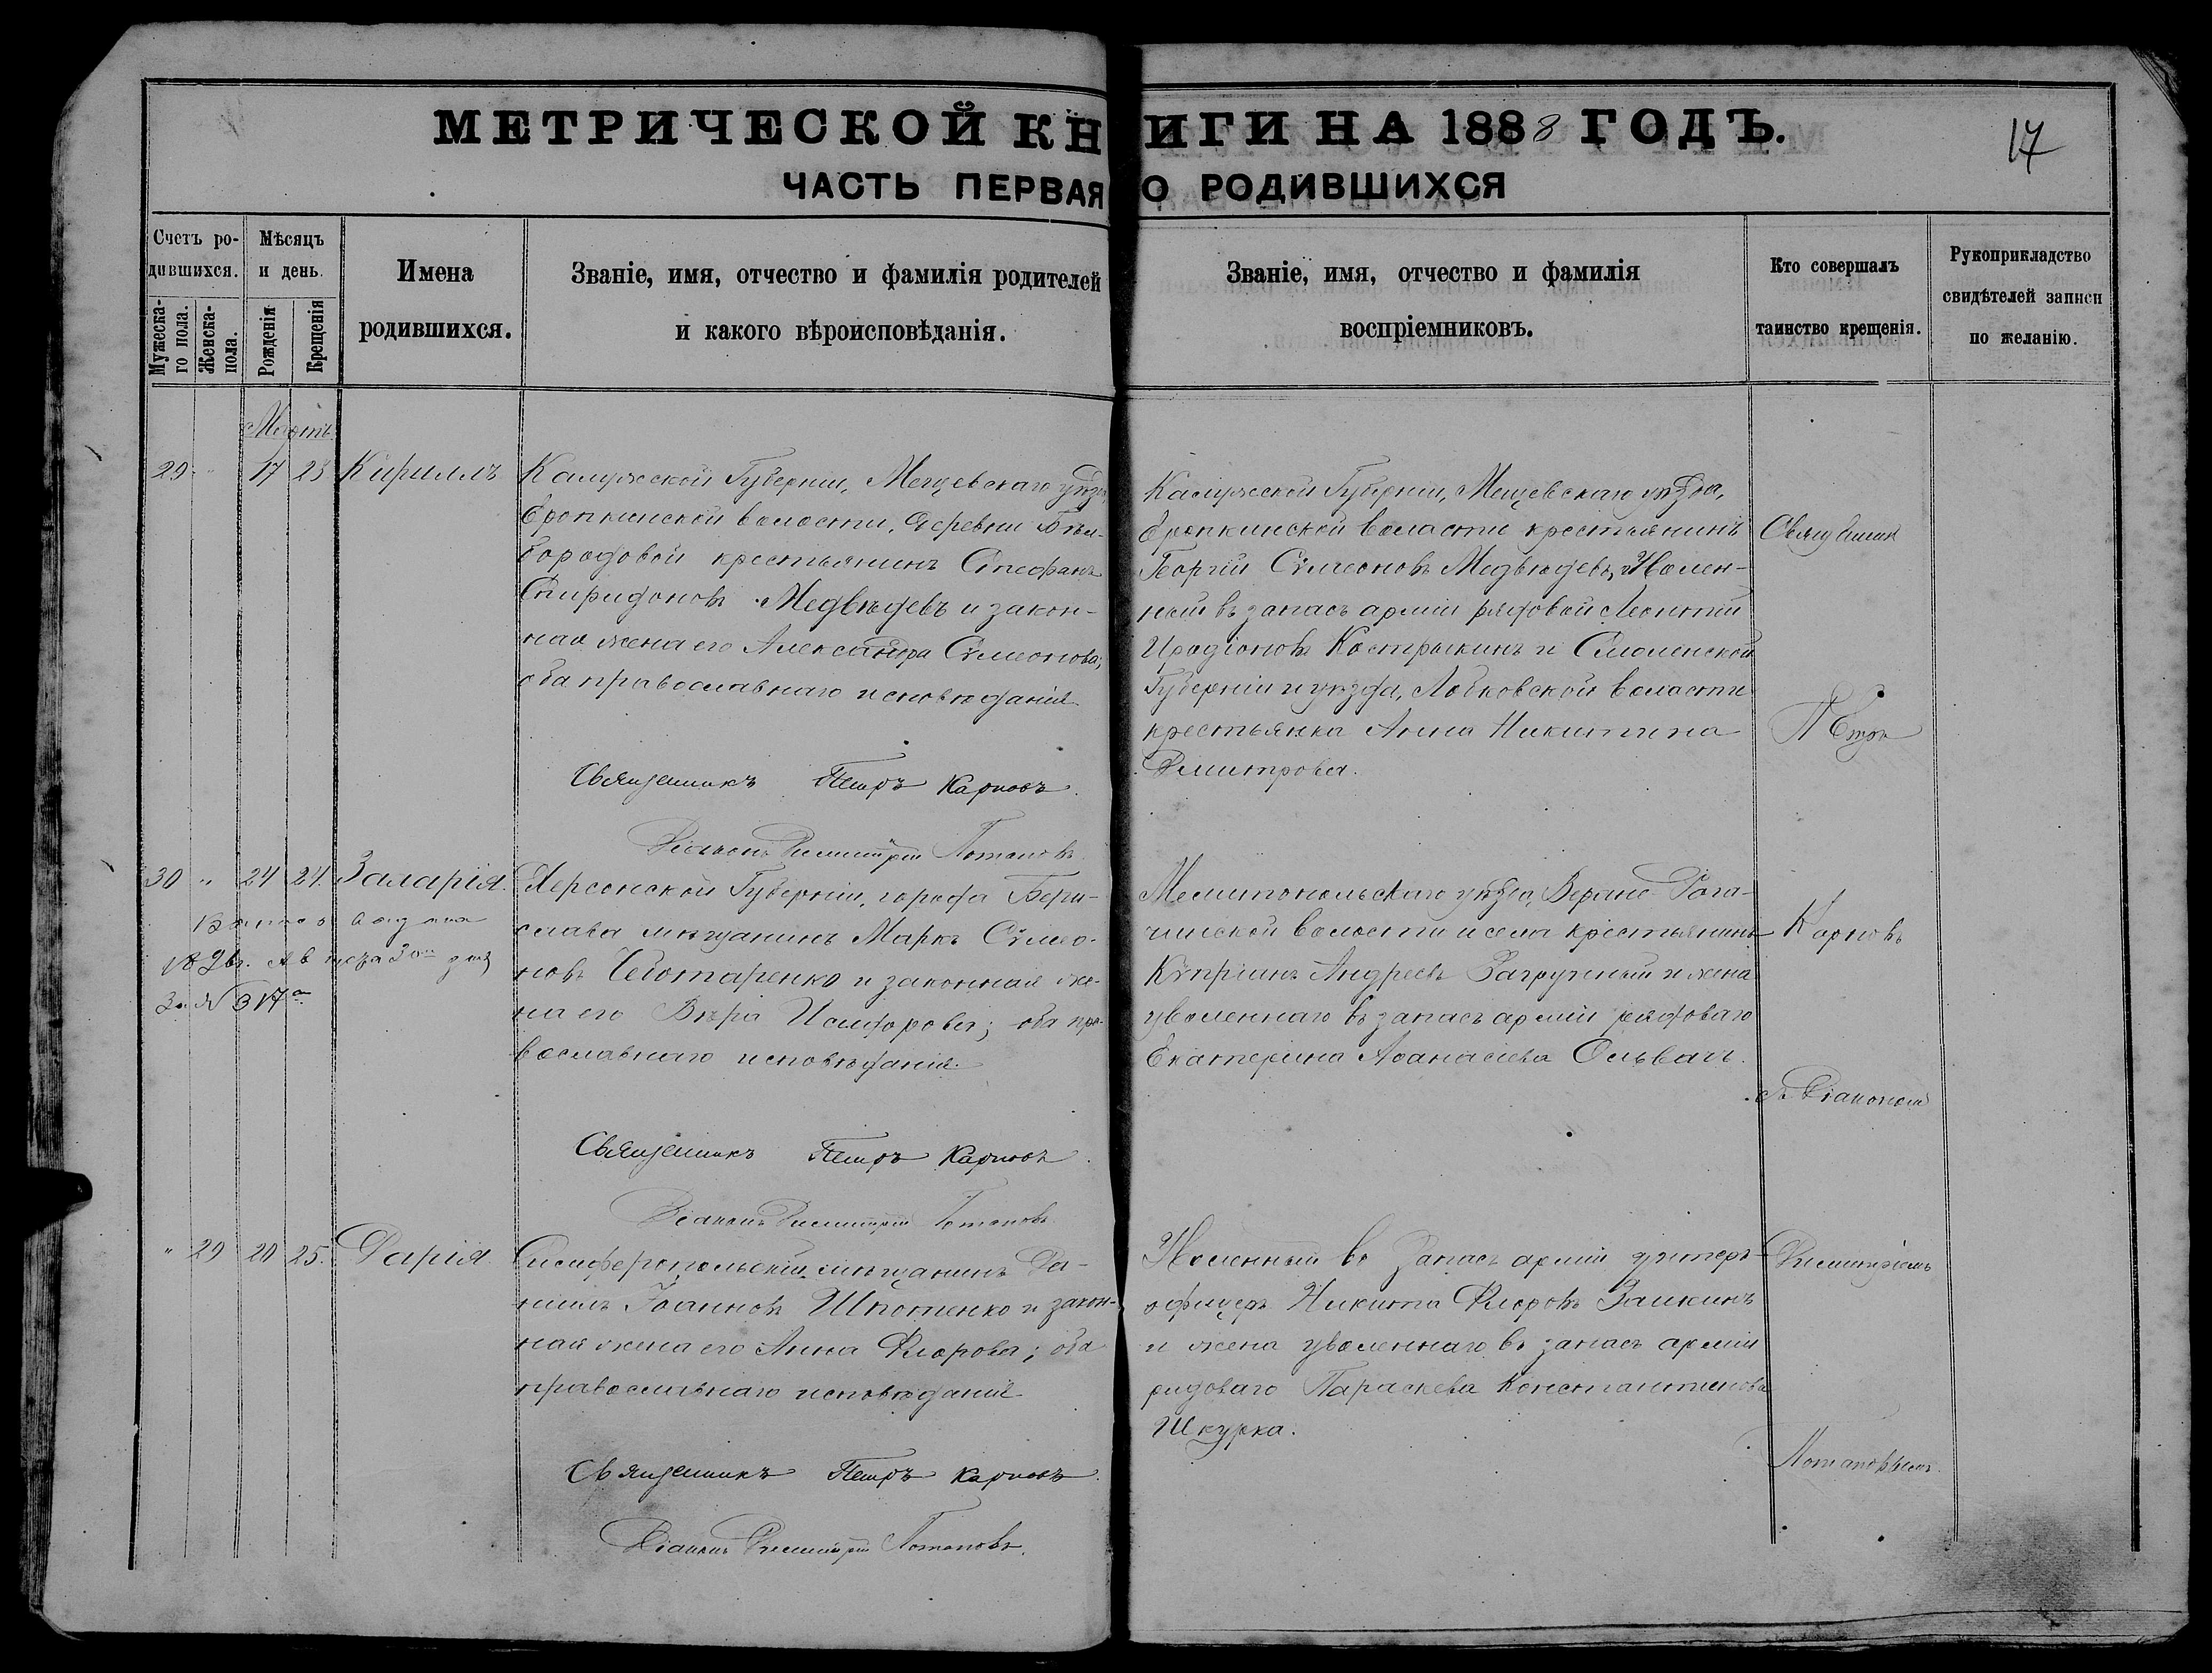 МЕТРИЧЕСКОЙ КНИГИ НА 1888 ГОДЪ.
17
ЧАСТЬ ПЕРВАЯ О РОДИВШИХСЯ
Счетъ ро-
дившихся.
Мужеска-
го пола.
Женска-
пола.
Мѣсяцъ
и день.
Рожденія
Крещенія
Имена
родившихся.
Званіе, имя, отчество и фамилія родителей
и какого вѣроисповѣданія.
Званіе, имя, отчество и фамилія
воспріемниковъ.
Кто совершалъ
таинство крещенія.
Рукоприкладство
свидѣтелей записи
по желанію.
Мартъ
29 " 17 23 Кириллъ
Калужской Губерніи, Мещевскаго уѣзда,
Еропкинской волости, деревни Бѣло-
бородовой крестьянинъ Стефанъ
Спиридоновъ Медвѣдевъ и закон-
ная жена его Александра Сѵмеонова;
оба православнаго исповѣданія
Священникъ Петръ Карповъ.
Діаконъ Димитрій Потаповъ.
Калужской Губерніи, Мещевскаго уѣзда,
Еропкинской волости крестьянинъ
Георгій Сѵмеоновъ Медвѣдевъ, Уволен-
ный въ запасъ арміи рядовой Леонтій
Иродіоновъ Кострыкинъ и Смоленской
Губерніи и уѣзда, Лобковской волости
крестьянка Анна Никитина
Димитрова.
Священник
Петръ
30 " 24 24. Захарія.
1892г.
За № 317
Херсонской Губерніи, города Бери-
слава мѣщанинъ Маркъ Сѵмео-
новъ Чеботаренко и законная же-
на его Вѣра Исидорова; оба пра-
вославнаго исповѣданія.
Священникъ Петръ Карповъ.
Діаконъ Димитрій Потаповъ
Мелитопольскаго уѣзда, Верхне-Рога-
чикской волости и села крестьянинъ
Кѵпріанъ Андреевъ Загручный и жена
уволеннаго въ запасъ арміи рядоваго
Екатерина Аѳанасіева Ольвачъ.
Карповъ
съ Діакономъ
" 29 20 25. Дарія
Симферопольскій мѣщанинъ Да-
ніилъ Іоанновъ Шпотенко и закон-
ная жена его Анна Флорова; оба
православнаго исповѣданія
Священникъ Петръ Карповъ.
Діаконъ Димитрій Потаповъ.
Уволенный въ Запасъ арміи унтеръ-
офицеръ Никита Флоровъ Заикинъ
и жена уволеннаго въ запасъ арміи
рядоваго Параскева Константинова
Шкурка.
Димитріемъ
Потаповымъ.